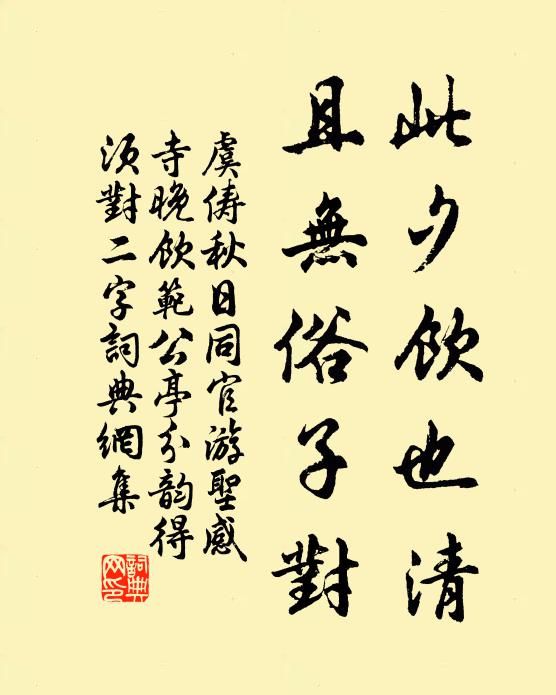 此夕飲也清
且無俗子對
虞儔秋日同官游聖感
寺晚飲範公亭分韵得
須對二字詞典網集
詞典
网印